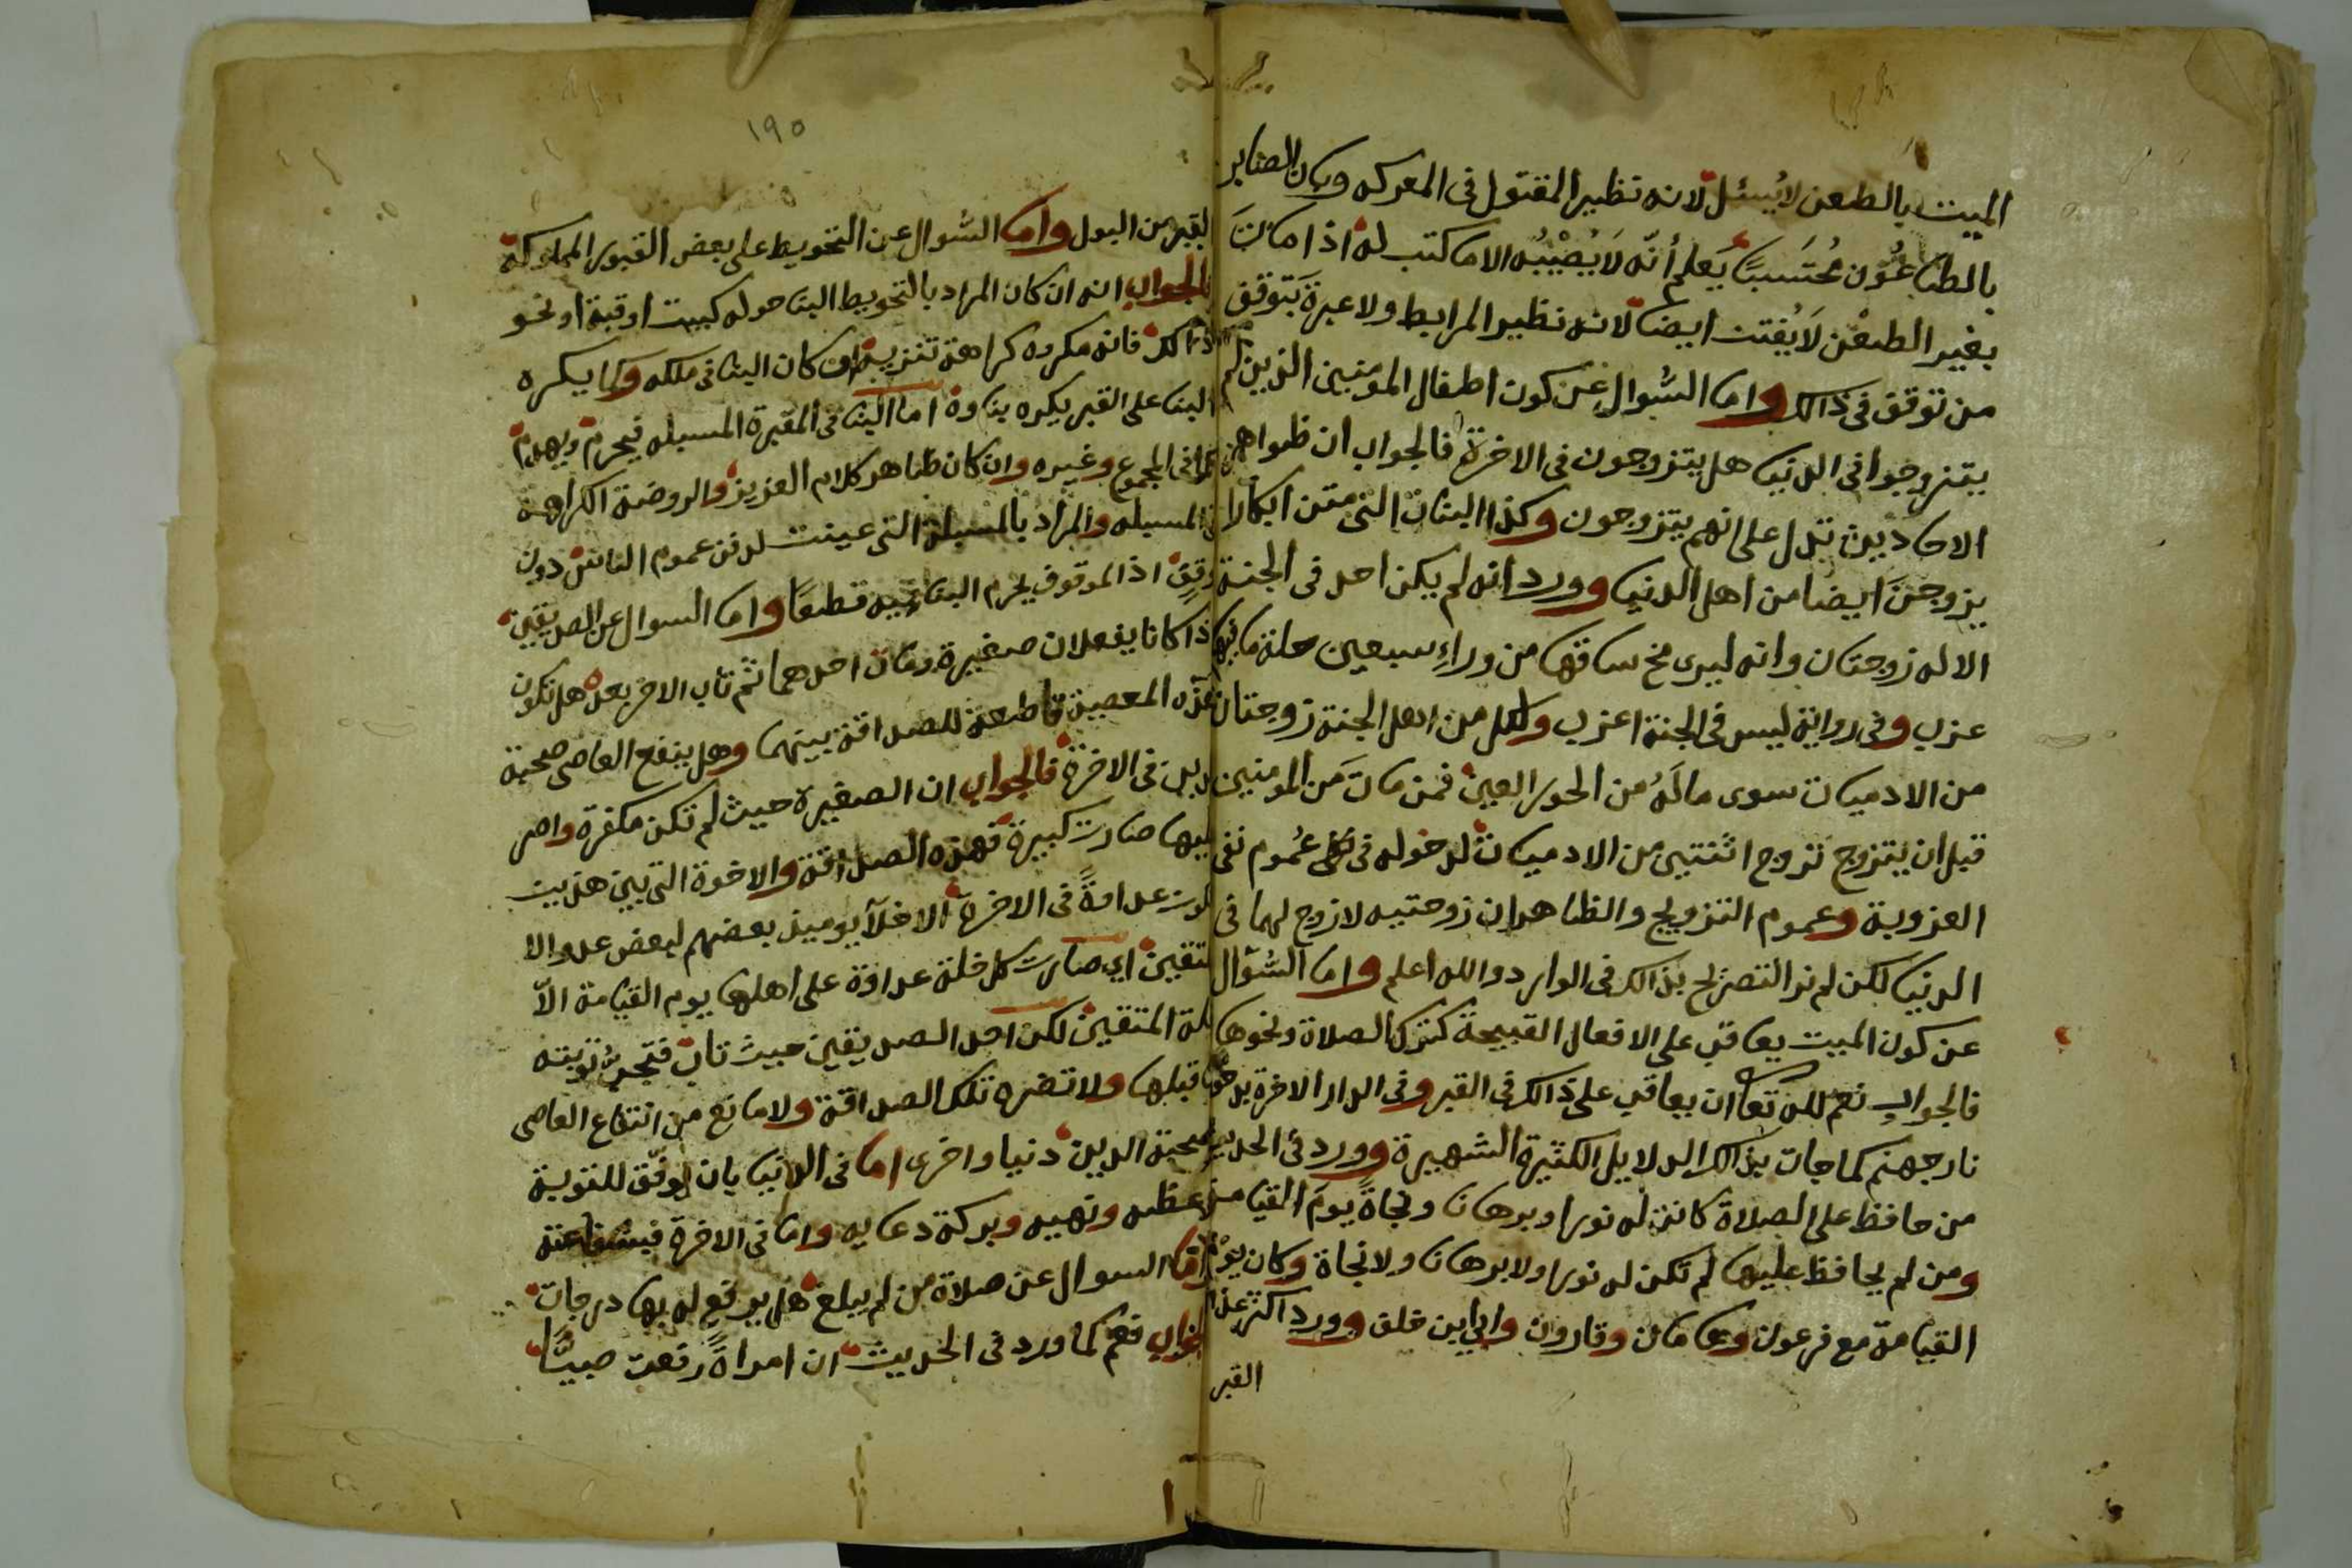 الميت بالطعن لا يُسئل لانه نظير المقتول في المعركه وبان الصابر
بالطاعُون مُحتَسبًا يَعلم أنّه لَا يُصْيْبُه الا ما كتب له اذا ماتَ
بغير الطعْن لَا يُفتن ايضا لانه نظير المرابط ولا عبرة بَتوقف
من توقف في ذالك واما السُوال عن كون اطفال المومنين الذين لم
يتزوجوا في الدنيا هل يتزوجون في الاخرة فالجواب ان ظواهر
الاحاديث تدل على انهم يتزوجون وكذا البنات التي متن ابكارا
يزوجنَ ايضا من اهل الدنيا وورد انه لم يكن احد في الجنة
الا له زوجتان وانه ليرى مخ ساقها من وراءِ سبعين حلة ما فيها
عزب وفي رواية ليس في الجنة اعزب ولكل من اهل الجنة زوجتان
من الادميات سوى ما لَهُ من الحور العين فمن ماتَ مَن المومنين
قبل ان يتزوج تزوج اثنتين من الادميات لدخوله في عُموم نفي
العزوبة وعموم التزويج والظاهر ان زوجتيه لا زوج لهما في
الدنيا لكن لم نر التصريح بذالك في الوارد والله اعلم واما السُّوال
عن كون الميت يعاقب على الافعال القبيحة كترك الصلاة ونحوها
فالجواب نعم لله تعا ان يعاقب على ذالك في القبر وفي الدار الاخرة بدخول
نار جهنم كما جات بذالك الدلايل الكثيرة الشهيرة وورد في الحديث
من حافظ على الصلاة كانت له نورا وبرهانا ونجاةً يومَ القيامة
ومن لم يحافظ عليها لم تكن له نورا ولا برهانا ولا نجاة وكان يوم
القيامة مع فرعون وهامان وقارون وابي ابن خلف وورد اكثر عذاب
القبر
١٩٥
القبر من البول واما السُوال عن التحويط على بعض القبور المملوكة
فالجواب انه ان كان المراد بالتحويط البنا حوله كبيت او قبة او نحو
ذالك فانه مكروه كراهة تنزيه ان كان البنا في ملكه وكما يكره
البنا على القبر يكره بناوه اما البنا في المقبرة المسبله فيحرم ويهدم
كما في المجموع وغيره وان كان ظاهر كلام العزيز والروضة الكراهة
في المسبله والمراد بالمسبلة التي عينت لدفن عموم الناس دون
وقفٍ اذ الموقوف يحرم البنا فيه قطعًا واما السوال عن الصديقين
اذا كانا يفعلان صغيرة ومات احدهما ثم تاب الاخر بعده هل تكون
هذه المعصية قاطعة للصداقة بينهما وهل ينفع العاصي صحبة
الدين في الاخرة فالجواب ان الصغيرة حيث لم تكن مكفرة واصر
عليها صارت كبيرة فهذه الصداقة والاخوة التي بين هذين
صارت عداوةً في الاخرة الاخلآ يوميذ بعضهم لبعض عدو الا
المتقين اي صارت كل خلة عداوة على اهلها يوم القيامة الّا
خلة المتقين لكن احد الصديقين حيث تاب فتجرُّ توبته
ما قبلها ولا تضره تلك الصداقة ولا مانع من انتفاع العاصي
بصحبة الدين دنيا واخرى اما في الدنيا بان يوفّق للتوبة
بوعظه ونهيه وبركة دعايه واما في الاخرة فبشفاعته
واما السوال عن صلاة من لم يبلغ هل يرفع له بها درجات
فالجواب نعم كما ورد في الحديث ان امراةً رفعت صبيًّا